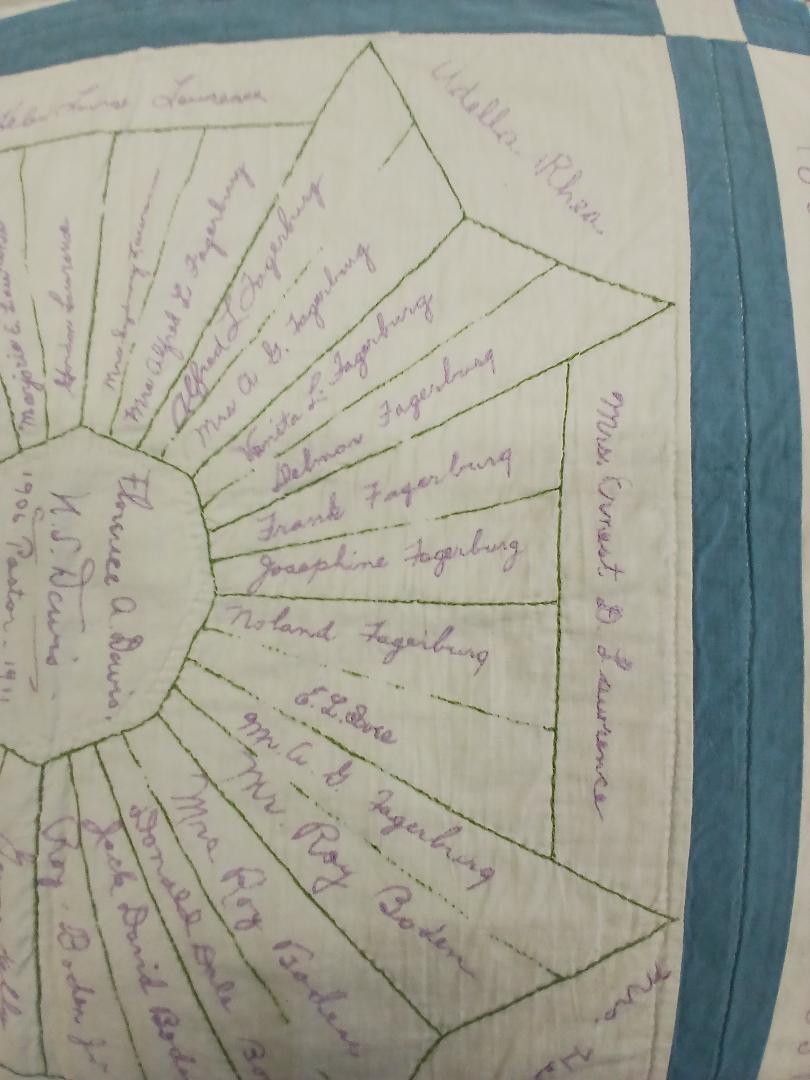 Lawrence
Udella Rhea
Lawrence
Mrs Alfred L Fagerburg
Alfred L Fagerburg
Mrs A G. Fagerburg
Vanita L. Fagerburg
Delmar Fagerburg
Frank Fagerburg
Josephine Fagerburg
Noland Fagerburg
Mrs. Ernest D. Lawrence
Florence A. Davis.
N. S. Davis
1906 Pastor - 1911
M. A. G. Fagerburg
Mr. Roy Boden
Mrs Roy Boden
Donald Dale Bo
Jack David Boden
Roy. Boden Jr